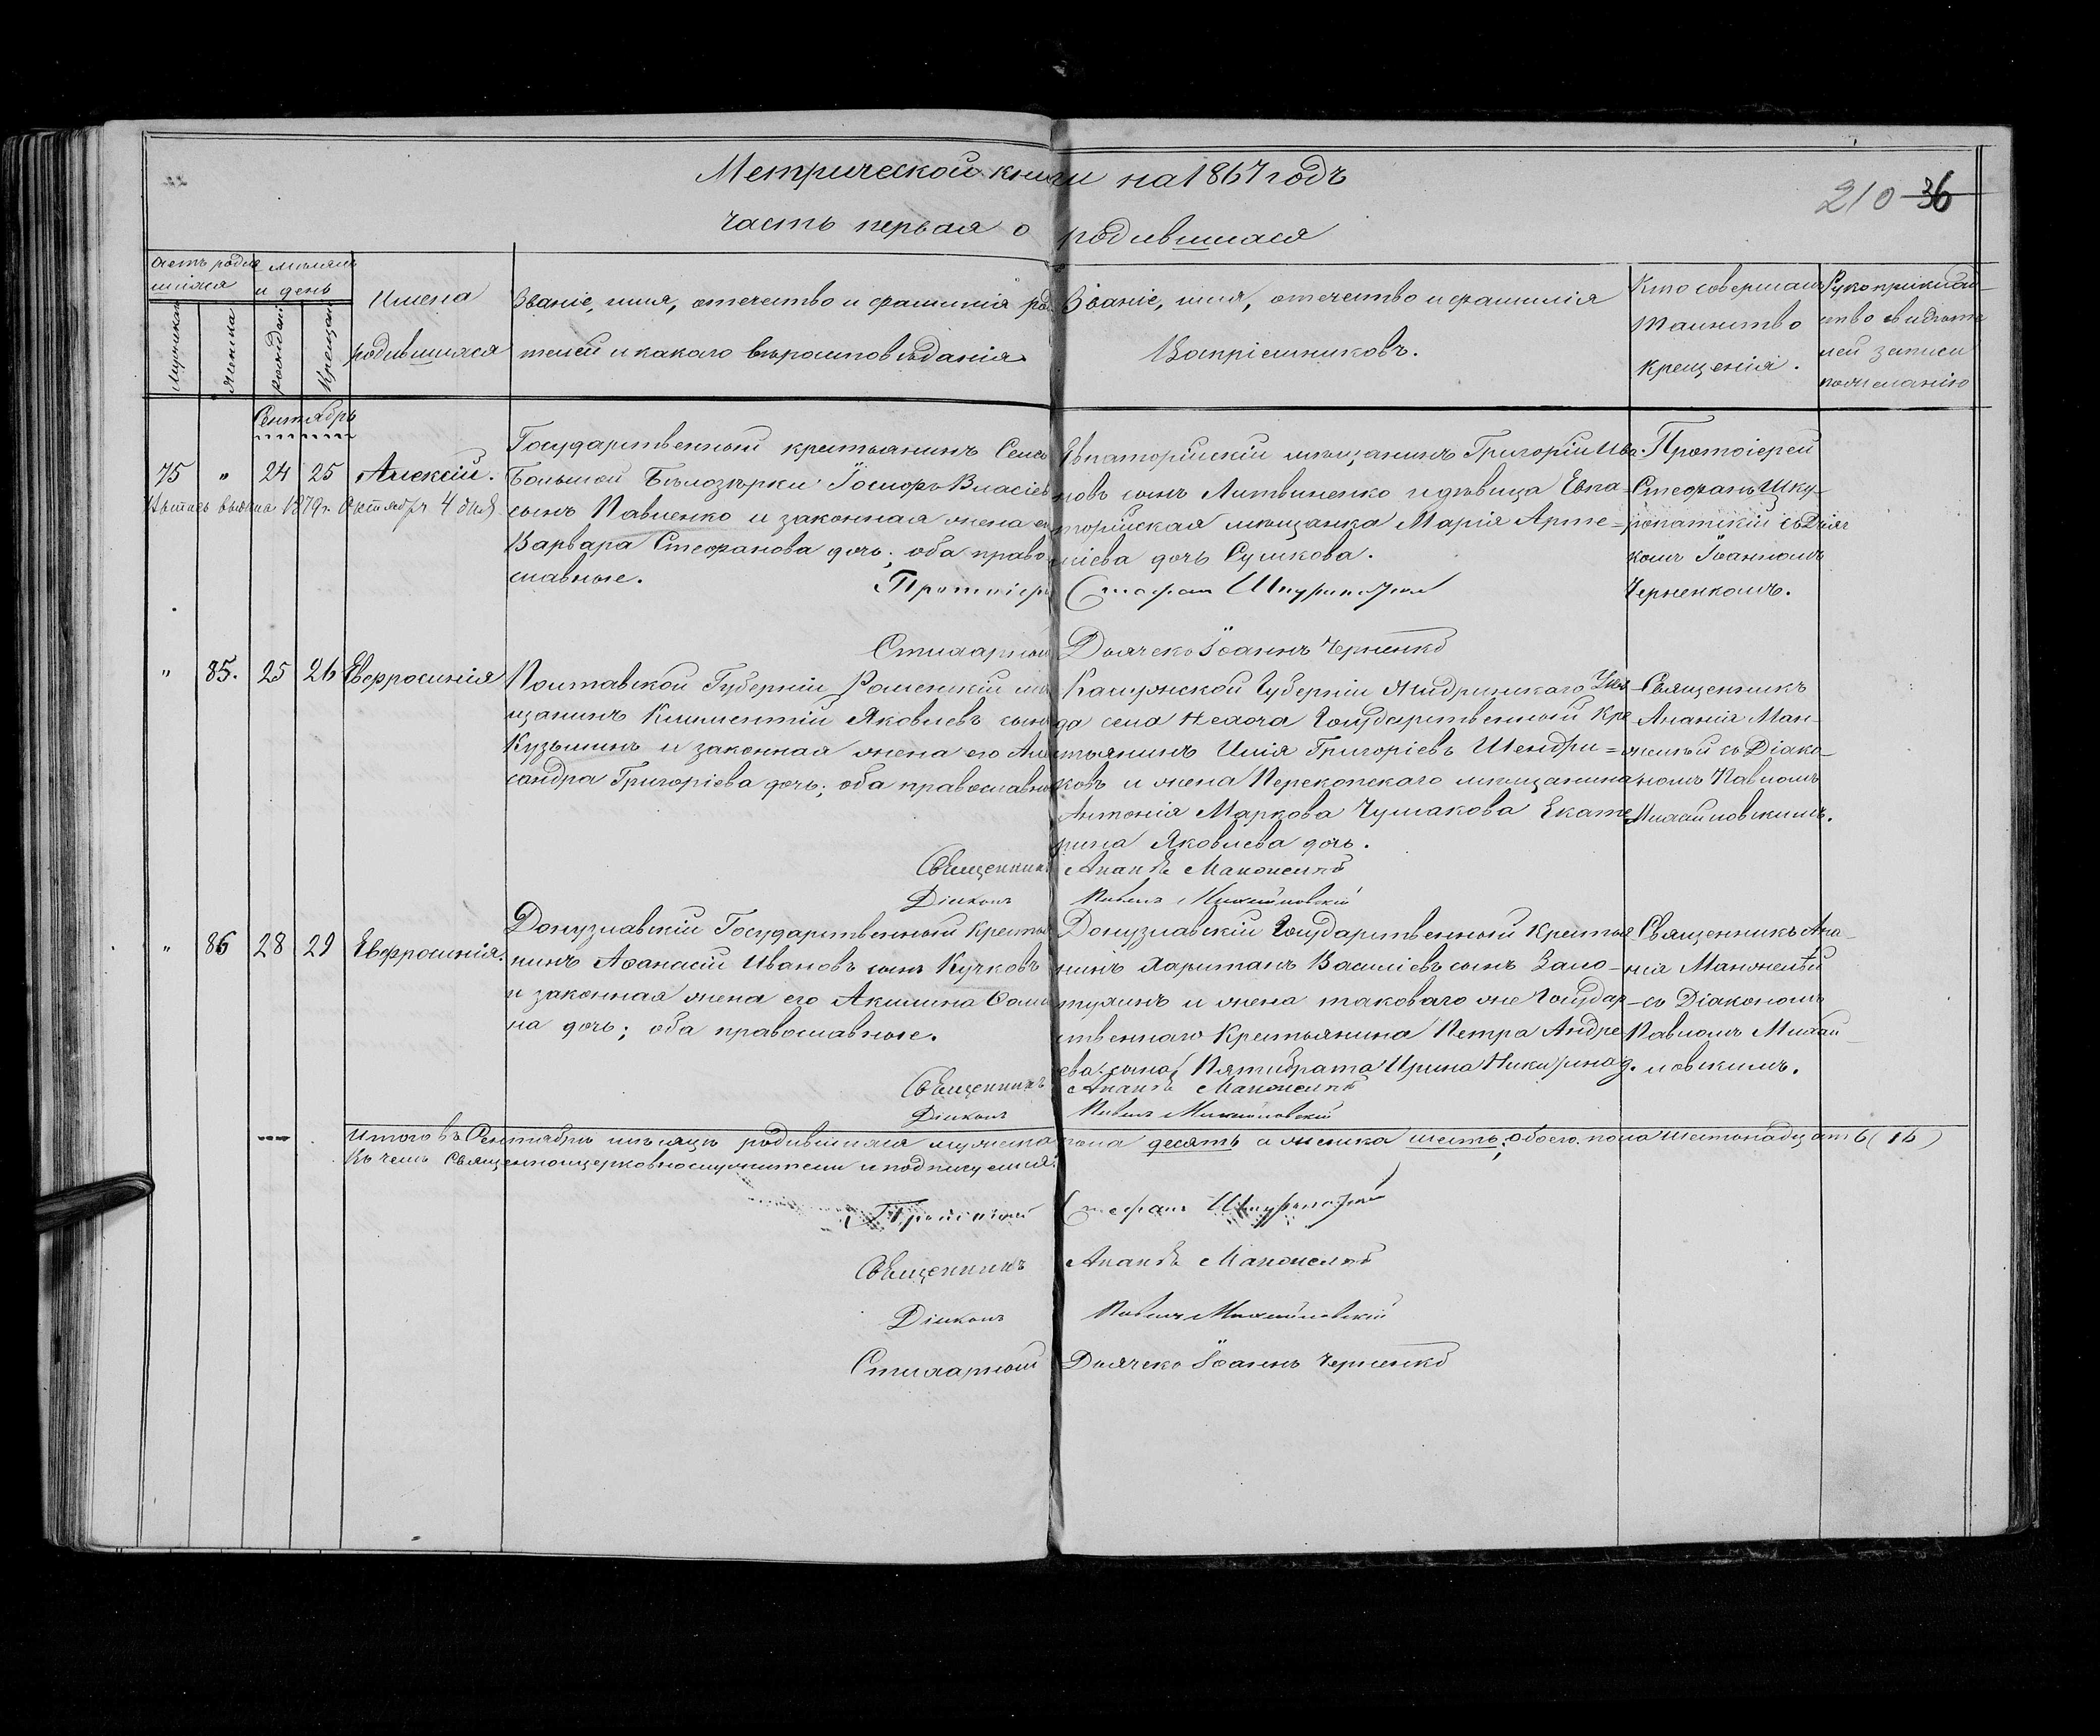 Метрической книги на 1867 годъ
210 36
часть первая о родившихся
Счетъ родив
шихся
мѣсяцъ
и день
Мужеска
Женска
рожденія
Крещенія
Имена
родившихся
Званіе, имя, отечество и фамилія ро
телей и какого вѣроисповѣданія
Званіе, имя, отечество и фамилія
Воспріемниковъ.
Кто совершалъ
таинство
крещенія.
Рукоприклад
ство свидѣте
лей записи
по желанію
Сентябрь
75 " 24 25 Алексій.
1879г. Октября 4 дня
Государственный крестьянинъ Села
Большой Бѣлозѣрки Ѳеодоръ Власіевъ
сынъ Павленко и законная жена его
Варвара Стефанова дочь; оба право
славные.
Евпаторійскій мѣщанинъ Григорій Ива
новъ сынъ Литвиненко и дѣвица Евпа-
торійская мѣщанка Марія Арте-
міева дочь Сушкова.
Протоіерей
Стефанъ Шку-
ропатскій съ Дьяч
комъ Іоанномъ
Черненкомъ.
Протоіерей Стефанъ
Стихарный Дьячекъ Іоаннъ Черненко
" 85. 25 26 Евфросинія
Полтавской Губерніи Роменскій мѣ
щанинъ Климентій Яковлевъ сынъ
Кузьминъ и законная жена его Алек
сандра Григоріева дочь; оба православные
Калужской Губерніи Жиздринскаго Уѣз
да села Государственный Кре
стьянинъ Илія Григоріевъ
ковъ и жена Перекопскаго мѣщанина
Антонія Маркова Чумакова Екате
рина Яковлева дочь.
Священникъ
Ананія Ман-
желѣй съ Діако-
номъ Павломъ
Михайловскимъ.
Священникъ Ананія Манжелѣй
Діаконъ Павелъ Михайловскій
" 86 28 29 Евфросинія.
Донузлавскій Государственный Крестья
нинъ Аѳанасій Ивановъ сынъ Кучковъ
и законная жена его Акилина
на дочь; оба православные.
Донузлавскій Государственный Крестья
нинъ Хаританъ Василіевъ сынъ Зало-
тухинъ и жена таковаго же Государ-
ственнаго Крестьянина Петра Андре
ева сына Пятибрата Ирина д.
Священникъ Ана-
нія Манжелѣй
съ Діакономъ
Павломъ Михай
ловскимъ.
Священникъ Ананія Манжелѣй
Діаконъ Павелъ Михайловскій
Итого въ Сентябрѣ мѣсяцѣ родившихся мужеска пола десять а женска шесть; обоего пола шестьнадцать (16)
Къ чему Священноцерковнослужители и подписуемся:
Протоіерей Стефанъ
Священникъ Ананія Манжелѣй
Діаконъ Павелъ Михайловскій
Стихарный Дьячекъ Іоаннъ Черненко